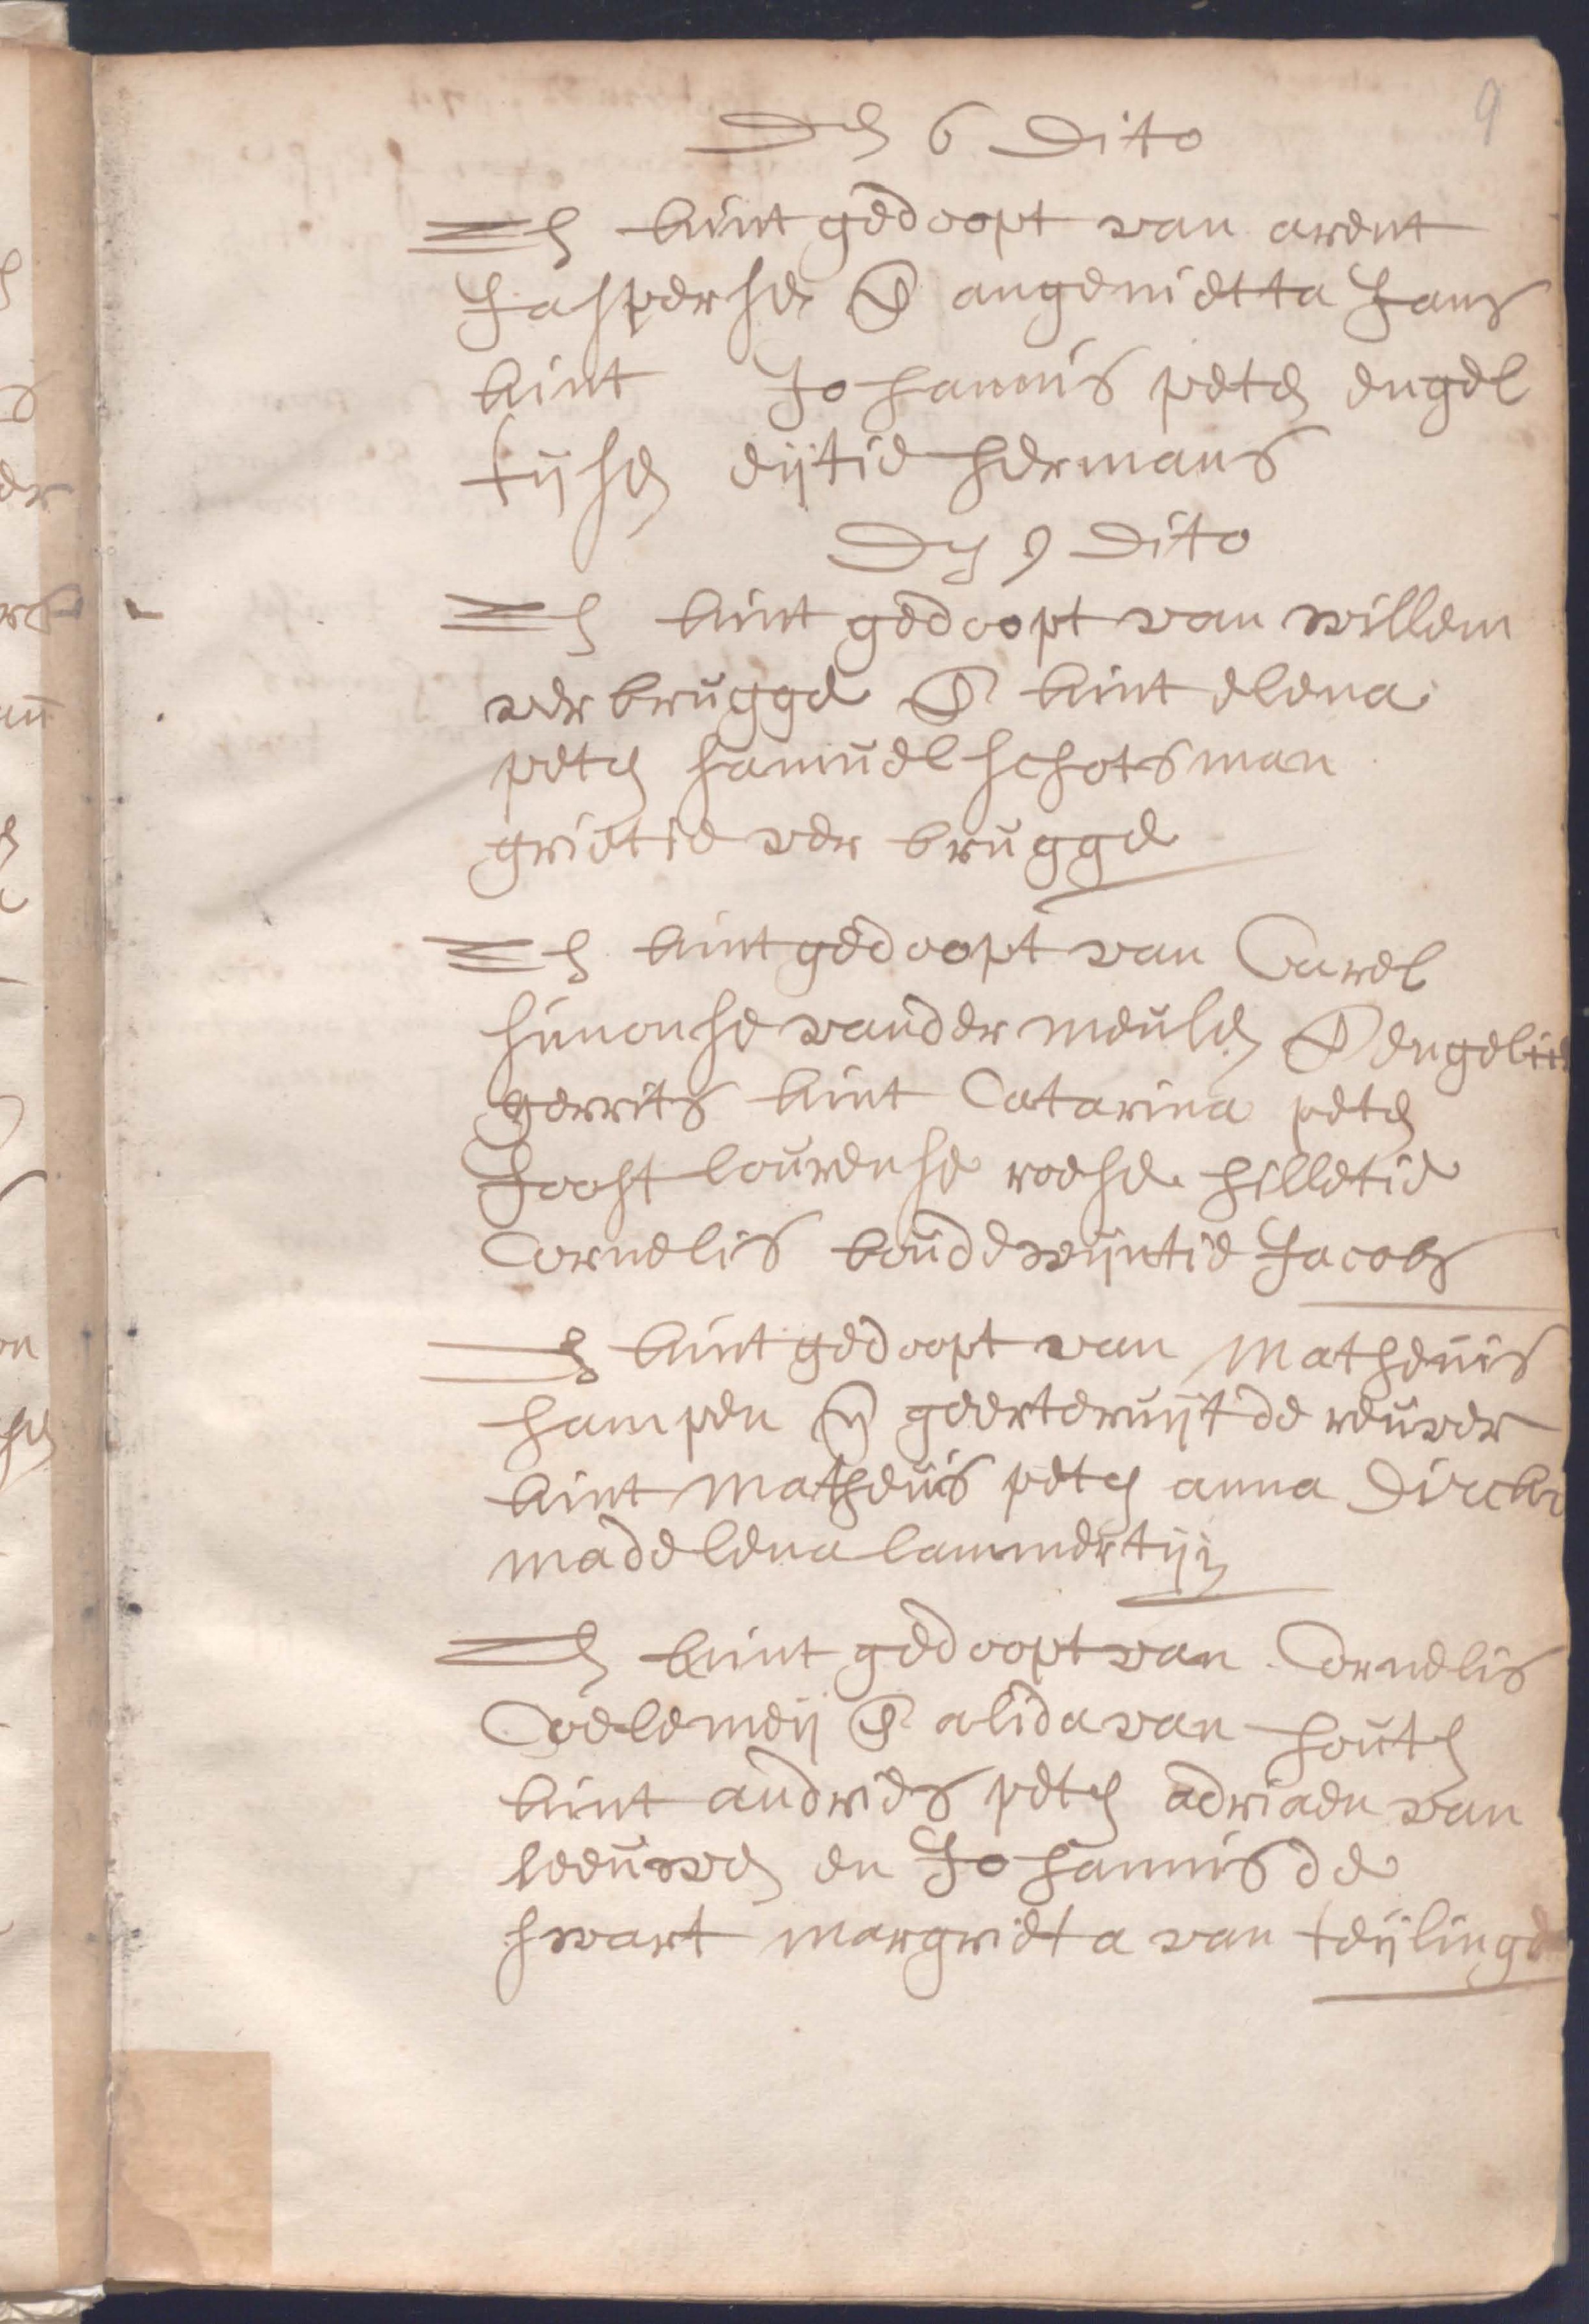 9
Den 6 Dito
Een kint gedoopt van arent
Jasperse & angenietta Jans
kint Johannis peten engel
tijsen eijtie hermans
Den 9 Dito
Een kint gedoopt van willem
verbrugge & kint elena
peten samuel schotsman
grietie ver brugge
Een kint gedoopt van Carel
simonse vander meulen & engeltie
gerrits kint Catarina peten
Joost lourense roese hilletie
Cornelis boudewijntie Jacobs
Een kint gedoopt van Matheuis
hampen & geerteruijt de reuver
kint Matheuis peten anna Dircks
madelena lammertijn
Een kint gedoopt van Cornelis
Coelemeij & alida van houten
kint andries peten adriaen van
leeuwen en Johannis de
swart margrieta van teijlinge